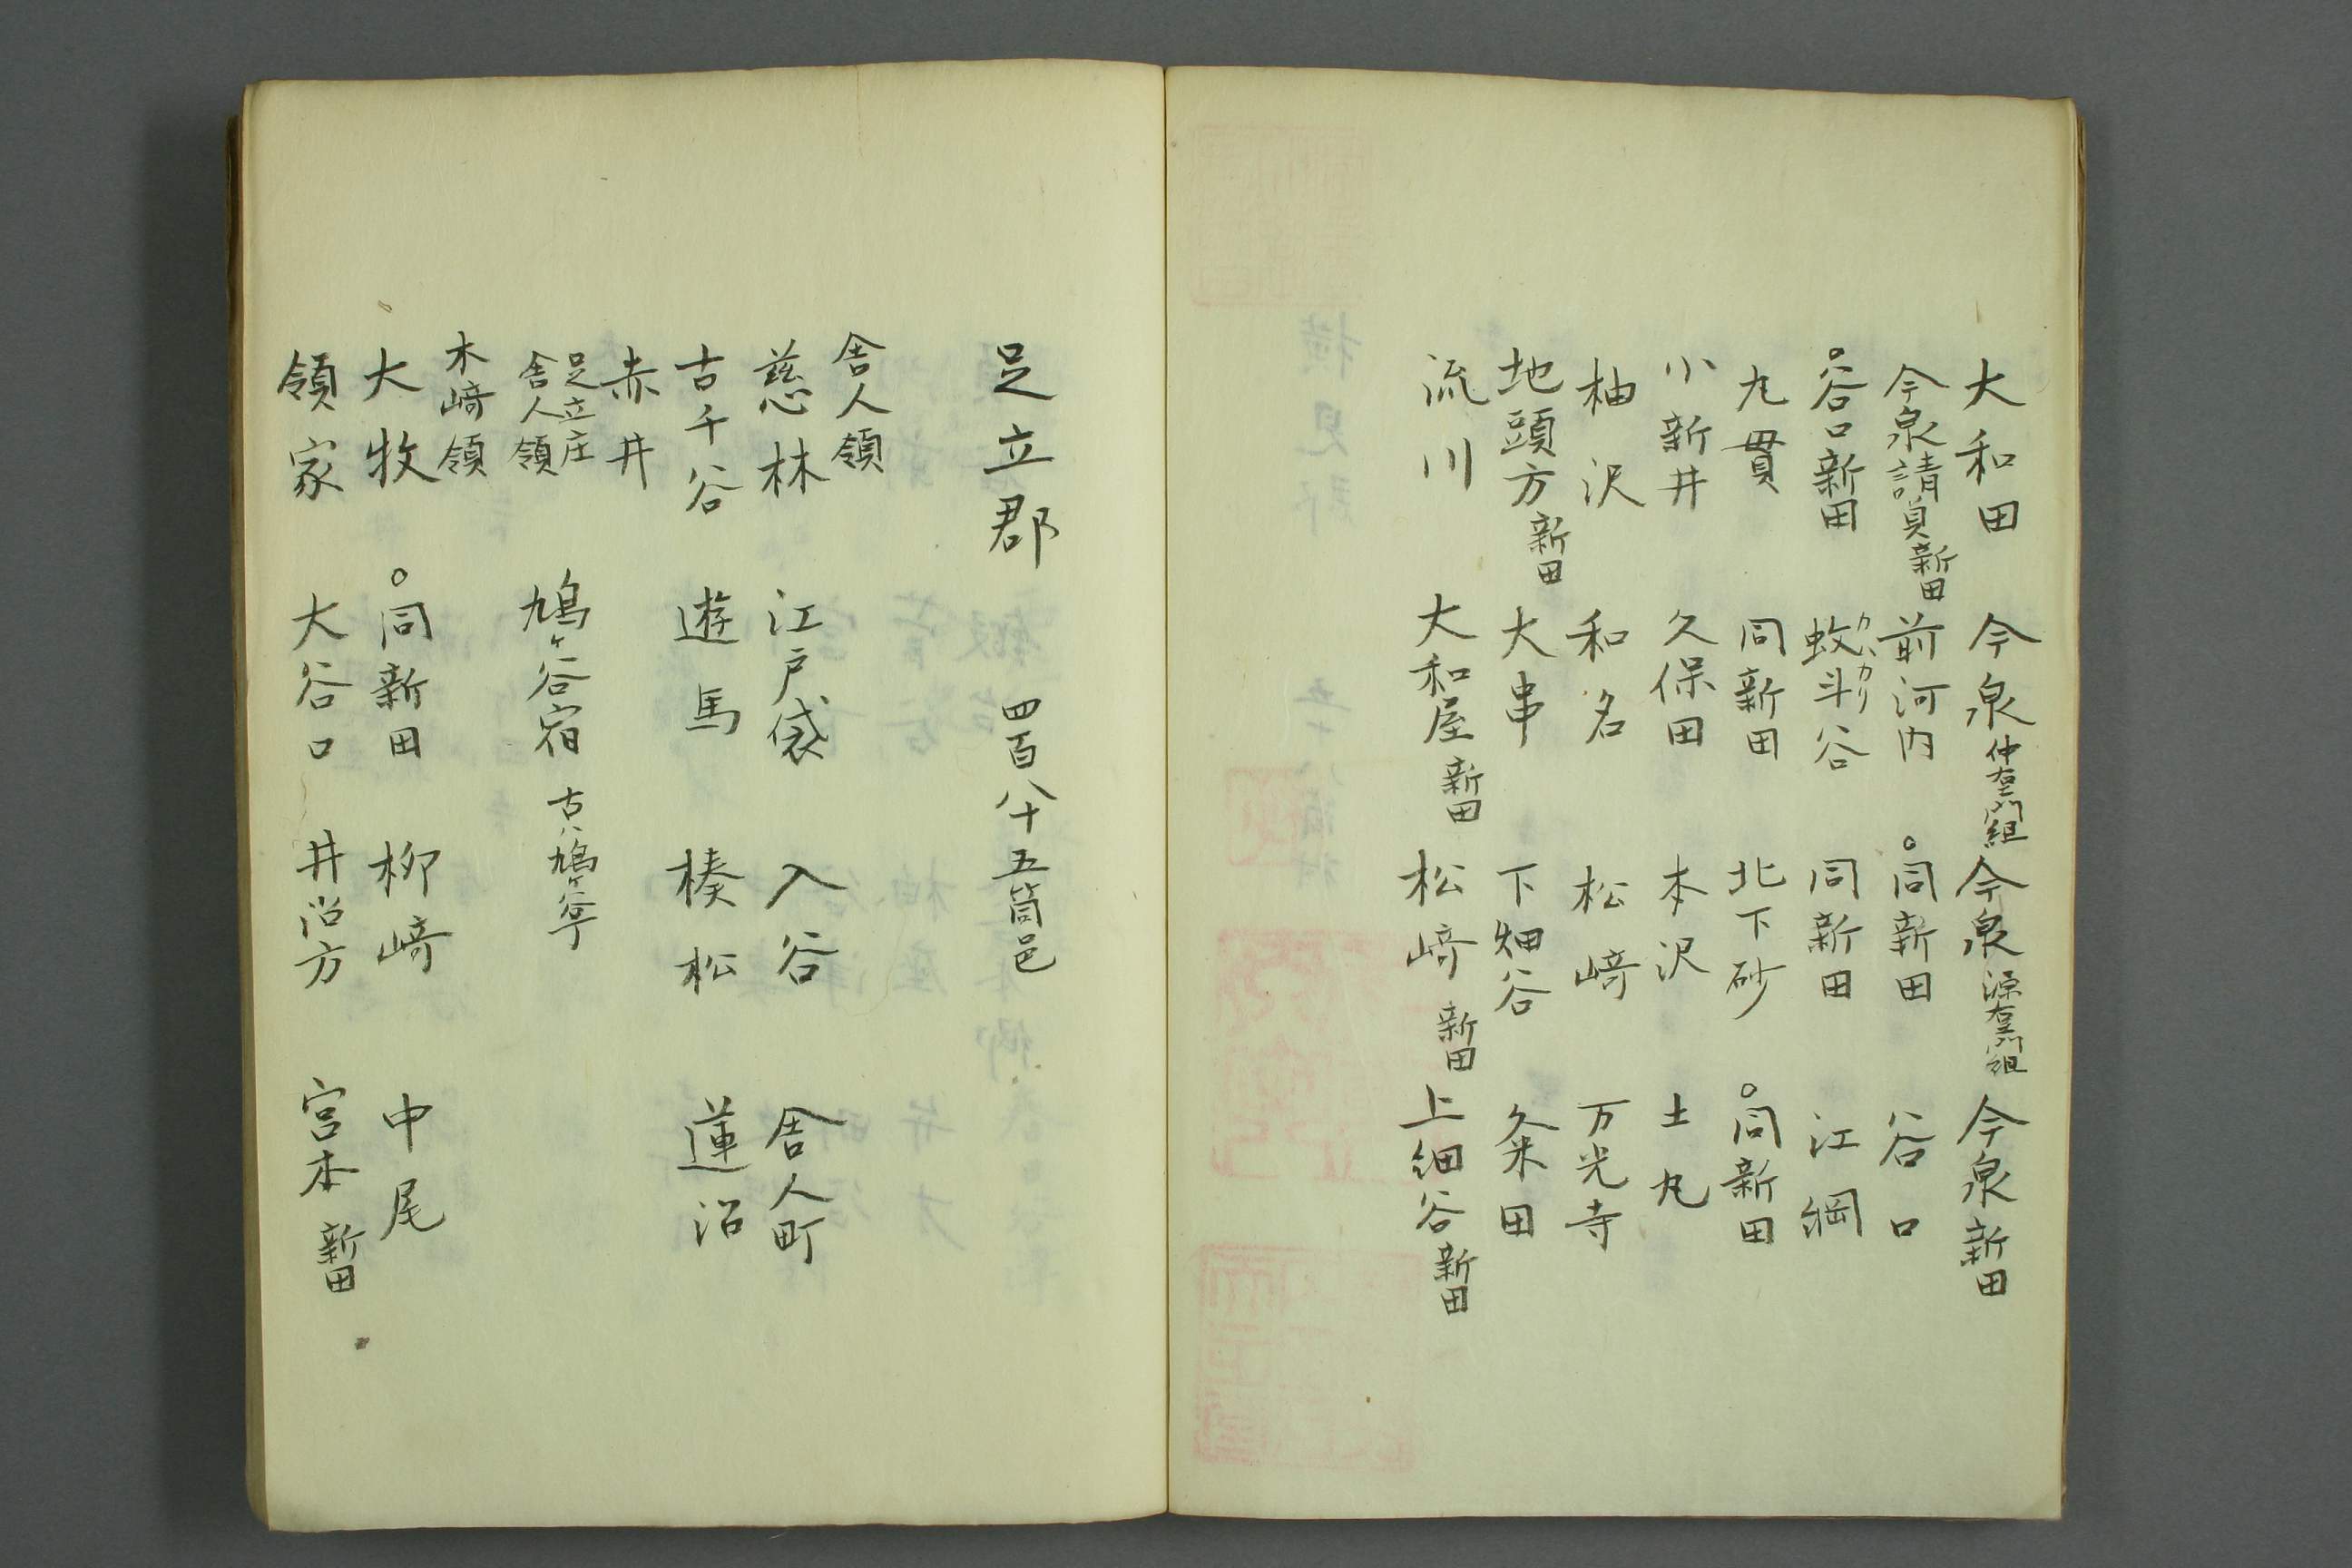 大和田　今泉仲右エ門組　今泉源右エ門組　今泉新田
今泉請負新田　前河内　○同新田　谷口
○谷口新田　蚊斗谷　同新田　江綱
丸貫　同新田　北下砂　○同新田
小新井　久保田　本沢　土丸
柚沢　和名　松﨑　万光寺
地頭方新田　大串　下畑谷　久米田
流川　大和屋新田　松﨑新田　上細谷新田
足立郡　四百八十五箇邑
舎人領
慈林　江戸袋　入谷　舎人町
古千谷　遊馬　榛松　蓮沼
赤井
足立庄
舎人領　鳩ヶ谷宿
木﨑領
大牧　○同新田　柳﨑　中尾
領家　大谷口　井沼方　宮本新田